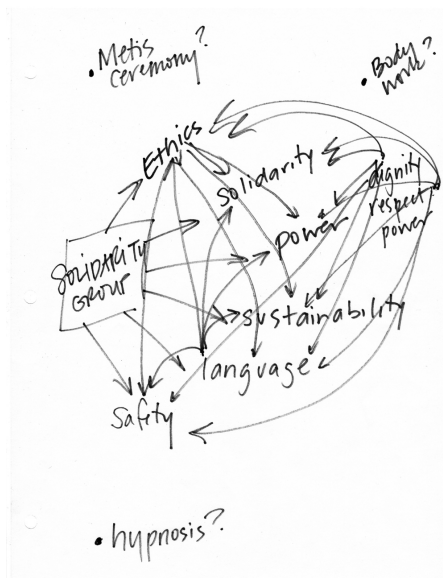 • Metis
ceremony?
• Body
work?
Ethics
solidarity
dignity
respect
power
power
SOLIDARITY
GROUP
sustainability
language
Safety
• hypnosis?